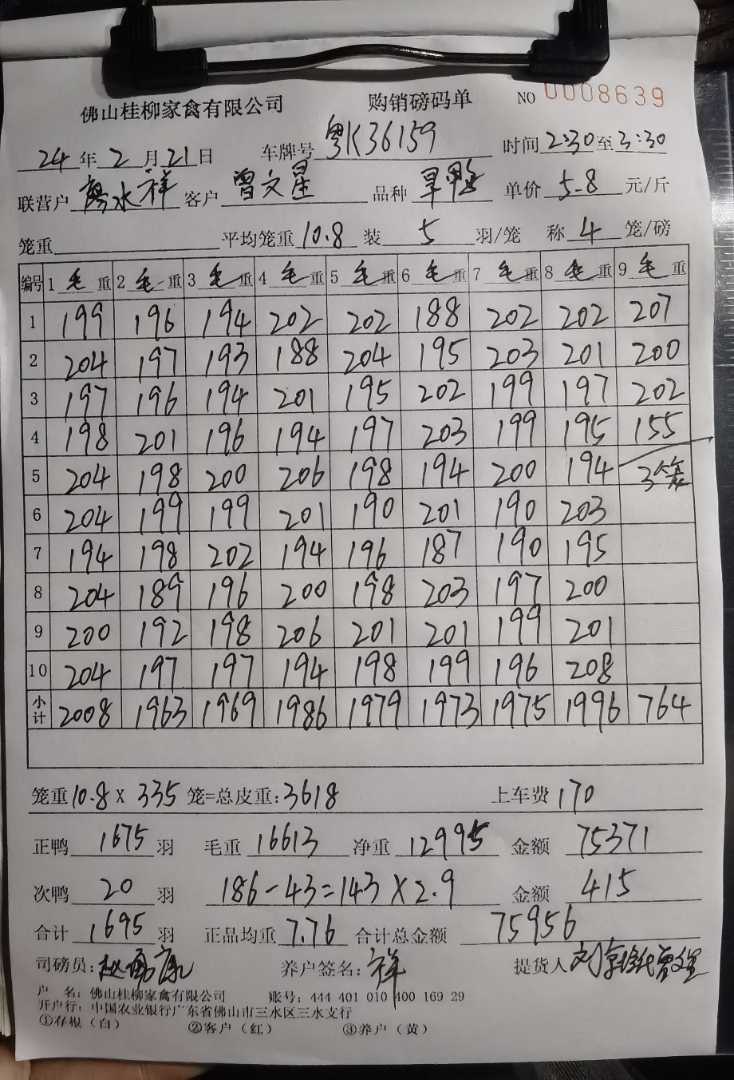 佛山桂柳家禽有限公司 购销磅码单 NO 0008639
24年2月21日 车牌号 粤K36159 时间 2:30至3:30
联营户 水祥 客户 曾文星 品种 旱鸭 单价 5.8 元/斤
笼重 平均笼重 10.8 装 5 羽/笼 称 4 笼/磅
编号 1 毛重 2 毛重 3 毛重 4 毛重 5 毛重 6 毛重 7 毛重 8 毛重 9 毛重
1 199 196 194 202 202 188 202 202 207
2 204 197 193 188 204 195 203 201 200
3 197 196 194 201 195 202 199 197 202
4 198 201 196 194 197 203 199 195 155
5 204 198 200 206 198 194 200 194 3笼
6 204 199 199 201 190 201 190 203
7 194 198 202 194 196 187 190 195
8 204 189 196 200 198 203 197 200
9 200 192 198 206 201 201 199 201
10 204 197 197 194 198 199 196 208
小计 2008 1963 1969 1986 1979 1973 1975 1996 764
笼重 10.8 X 335 笼=总皮重:3618 上车费 170
正鸭 1675 羽 毛重 16613 净重 12995 金额 75371
次鸭 20 羽 186-43=143×2.9 金额 415
合计 1695 羽 正品均重 7.76 合计总金额 75956
司磅员: 养户签名: 祥 提货人
户 名: 佛山桂柳家禽有限公司 账号: 444 401 010 400 169 29
开户行: 中国农业银行广东省佛山市三水区三水支行
①存根(白) ②客户(红) ③养户(黄)